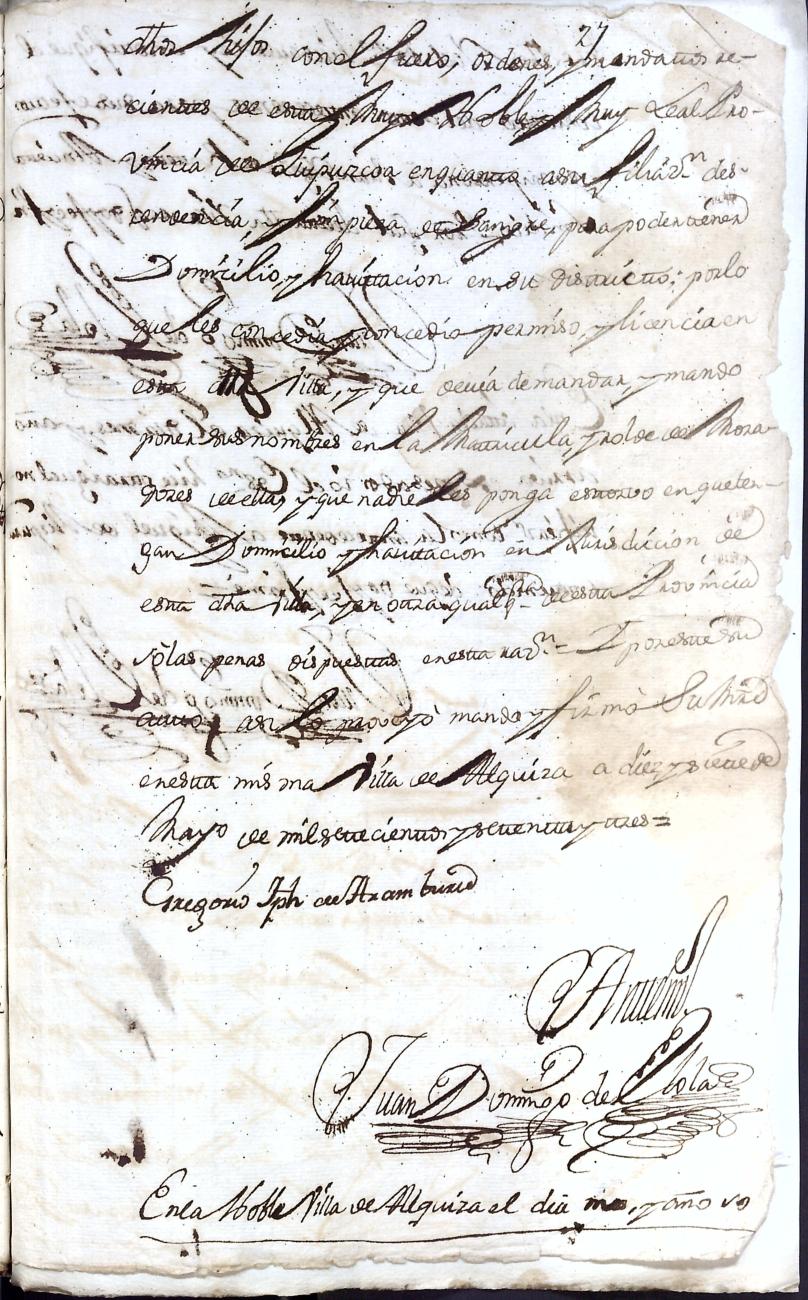 27
dhos hijos con el fuero, ordenes, y mandatos re-
cientes de esta Muy Noble y Muy Leal Pro-
vincia de Guipuzcoa en quanto a su filiazn. des-
cendencia, y limpieza de sangre, para poder tener
Domicilio, y havitacion en su districto; por lo
que les concedia, y concedio permiso, y licencia en
esta dha Villa, y que devia de mandar, y mando
poner sus nombres en la Matricula, y rolde de Mora-
dores de ella, y que nadie les ponga estorvo en que ten-
gan Domicilio y havitacion en Jurisdicion de
esta dha Villa, y en otra qualq- de esta Provincia
so las penas dispuestas en esta razn. = Y por este su
auto, asi lo proveyò mando y firmò Su Mrd
en esta misma Villa de Alquiza a diez y siete de
Mayo de mil setecientos y setenta y tres =
Gregorio Jph de Aramburu
Ante mi
Juan Domingo de
En la Noble Villa de Alquiza el dia mes, y año